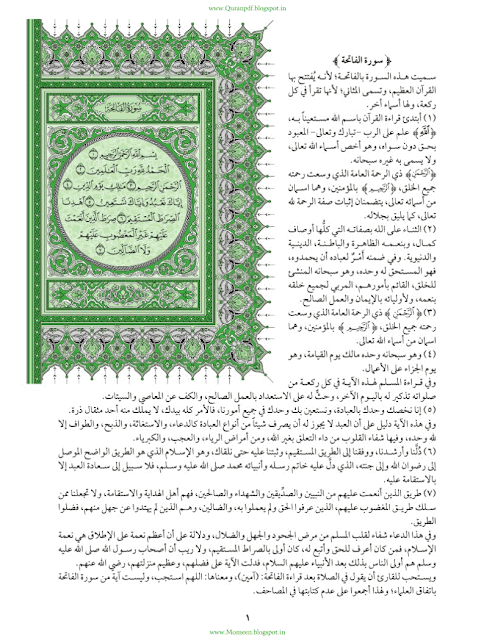 www.Quranpdf.blogspot.in
﴿ سورة الفاتحة ﴾
سميت هذه السورة بالفاتحة؛ لأنه يُفتتح بها
القرآن العظيم، وتسمى المثاني؛ لأنها تقرأ في كل
ركعة، ولها أسماء أخر.
(١) أبتدئ قراءة القرآن باسم الله مستعيناً به،
﴿ٱللَّهِ﴾ علم على الرب -تبارك وتعالى- المعبود
بحق دون سواه، وهو أخص أسماء الله تعالى،
ولا يسمى به غيره سبحانه.
﴿ٱلرَّحْمَٰنِ﴾ ذي الرحمة العامة الذي وسعت رحمته
جميع الخلق، ﴿ٱلرَّحِيمِ﴾ بالمؤمنين، وهما اسمان
من أسمائه تعالى، يتضمنان إثبات صفة الرحمة لله
تعالى، كما يليق بجلاله.
(٢) الثناء على الله بصفاته التي كلُّها أوصاف
كمال، وبنعمه الظاهرة والباطنة، الدينية
والدنيوية. وفي ضمنه أَمْرٌ لعباده أن يحمدوه،
فهو المستحق له وحده، وهو سبحانه المنشئ
للخلق، القائم بأمورهم، المربي لجميع خلقه
بنعمه، ولأوليائه بالإيمان والعمل الصالح.
(٣) ﴿ٱلرَّحْمَٰنِ﴾ ذي الرحمة العامة الذي وسعت
رحمته جميع الخلق، ﴿ٱلرَّحِيمِ﴾ بالمؤمنين، وهما
اسمان من أسماء الله تعالى.
(٤) وهو سبحانه وحده مالك يوم القيامة، وهو
يوم الجزاء على الأعمال.
وفي قراءة المسلم لهذه الآية في كل ركعة من
صلواته تذكير له باليوم الآخر، وحثٌّ له على الاستعداد بالعمل الصالح، والكف عن المعاصي والسيئات.
(٥) إنا نخصك وحدك بالعبادة، ونستعين بك وحدك في جميع أمورنا، فالأمر كله بيدك، لا يملك منه أحد مثقال ذرة.
وفي هذه الآية دليل على أن العبد لا يجوز له أن يصرف شيئاً من أنواع العبادة كالدعاء، والاستغاثة، والذبح، والطواف إلا
لله وحده، وفيها شفاء القلوب من داء التعلق بغير الله، ومن أمراض الرياء، والعجب، والكبرياء.
(٦) دُلَّنا وأرشدنا، ووفقنا إلى الطريق المستقيم، وثبتنا عليه حتى نلقاك، وهو الإسلام الذي هو الطريق الواضح الموصل
إلى رضوان الله وإلى جنته، الذي دلّ عليه خاتم رسله وأنبيائه محمد صلى الله عليه وسلم، فلا سبيل إلى سعادة العبد إلا
بالاستقامة عليه.
(٧) طريق الذين أنعمت عليهم من النبيين والصدِّيقين والشهداء والصالحين، فهم أهل الهداية والاستقامة، ولا تجعلنا ممن
سلك طريق المغضوب عليهم، الذين عرفوا الحق ولم يعملوا به، والضالين، وهم الذين لم يهتدوا عن جهل منهم، فضلوا
الطريق.
وفي هذا الدعاء شفاء لقلب المسلم من مرض الجحود والجهل والضلال، ودلالة على أن أعظم نعمة على الإطلاق هي نعمة
الإسلام، فمن كان أعرف للحق وأتبع له، كان أولى بالصراط المستقيم، ولا ريب أن أصحاب رسول الله صلى الله عليه
وسلم هم أولى الناس بذلك بعد الأنبياء عليهم السلام، فدلت الآية على فضلهم، وعظيم منزلتهم، رضي الله عنهم.
ويستحب للقارئ أن يقول في الصلاة بعد قراءة الفاتحة: (آمين)، ومعناها: اللهم استجب، وليست آية من سورة الفاتحة
باتفاق العلماء؛ ولهذا أجمعوا على عدم كتابتها في المصاحف.
سُورَةُ الفَاتِحَةِ
بِسْمِ ٱللَّهِ ٱلرَّحْمَٰنِ ٱلرَّحِيمِ ١
ٱلْحَمْدُ لِلَّهِ رَبِّ ٱلْعَٰلَمِينَ ٢
ٱلرَّحْمَٰنِ ٱلرَّحِيمِ ٣ مَٰلِكِ يَوْمِ ٱلدِّينِ ٤
إِيَّاكَ نَعْبُدُ وَإِيَّاكَ نَسْتَعِينُ ٥ ٱهْدِنَا
ٱلصِّرَٰطَ ٱلْمُسْتَقِيمَ ٦ صِرَٰطَ ٱلَّذِينَ أَنْعَمْتَ
عَلَيْهِمْ غَيْرِ ٱلْمَغْضُوبِ عَلَيْهِمْ
وَلَا ٱلضَّآلِّينَ ٧
١
www.Momeen.blogspot.in